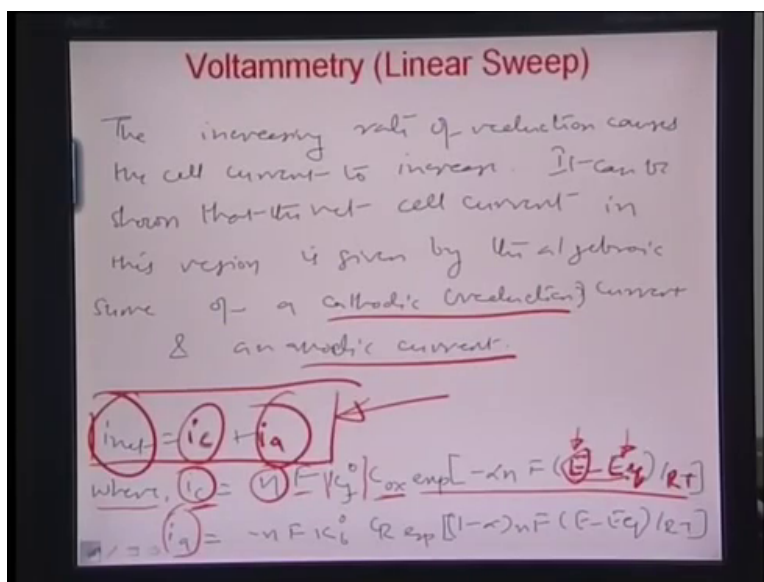 Voltammetry (Linear Sweep)
The increasing rate of reduction causes
the cell current to increase. It can be
shown that the net cell current in
this region is given by the algebraic
sum of a cathodic (reduction) current
& an anodic current.
i_net = i_c + i_a
where, i_c = n F K_f^0 C_ox exp[-αn F (E - E_eq)/RT]
i_a = -n F K_b^0 C_R exp[(1-α)n F (E - E_eq)/RT]